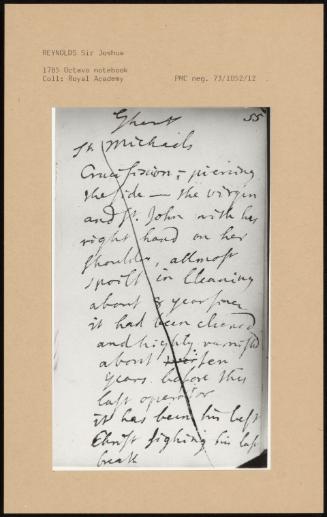 REYNOLDS Sir Joshua
1785 Octavo notebook
Coll: Royal Academy
PMC neg. 73/1052/12
Ghent
55
St Michaels
Crucifixion, piercing
the side — the virgin
and St. John with his
right hand on her
shoulder, allmost
spoilt in Cleaning
about 3 year since
it had been cleaned
and highly varnish'd
about ten
years before this
last operator
it has been his best
Christ sighing his last
breath